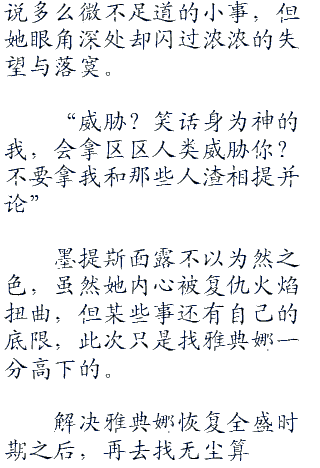 说多么微不足道的小事，但
她眼角深处却闪过浓浓的失
望与落寞。
“威胁？笑话身为神的
我，会拿区区人类威胁你？
不要拿我和那些人渣相提并
论”
墨提斯面露不以为然之
色，虽然她内心被复仇火焰
扭曲，但某些事还有自己的
底限，此次只是找雅典娜一
分高下的。
解决雅典娜恢复全盛时
期之后，再去找无尘算